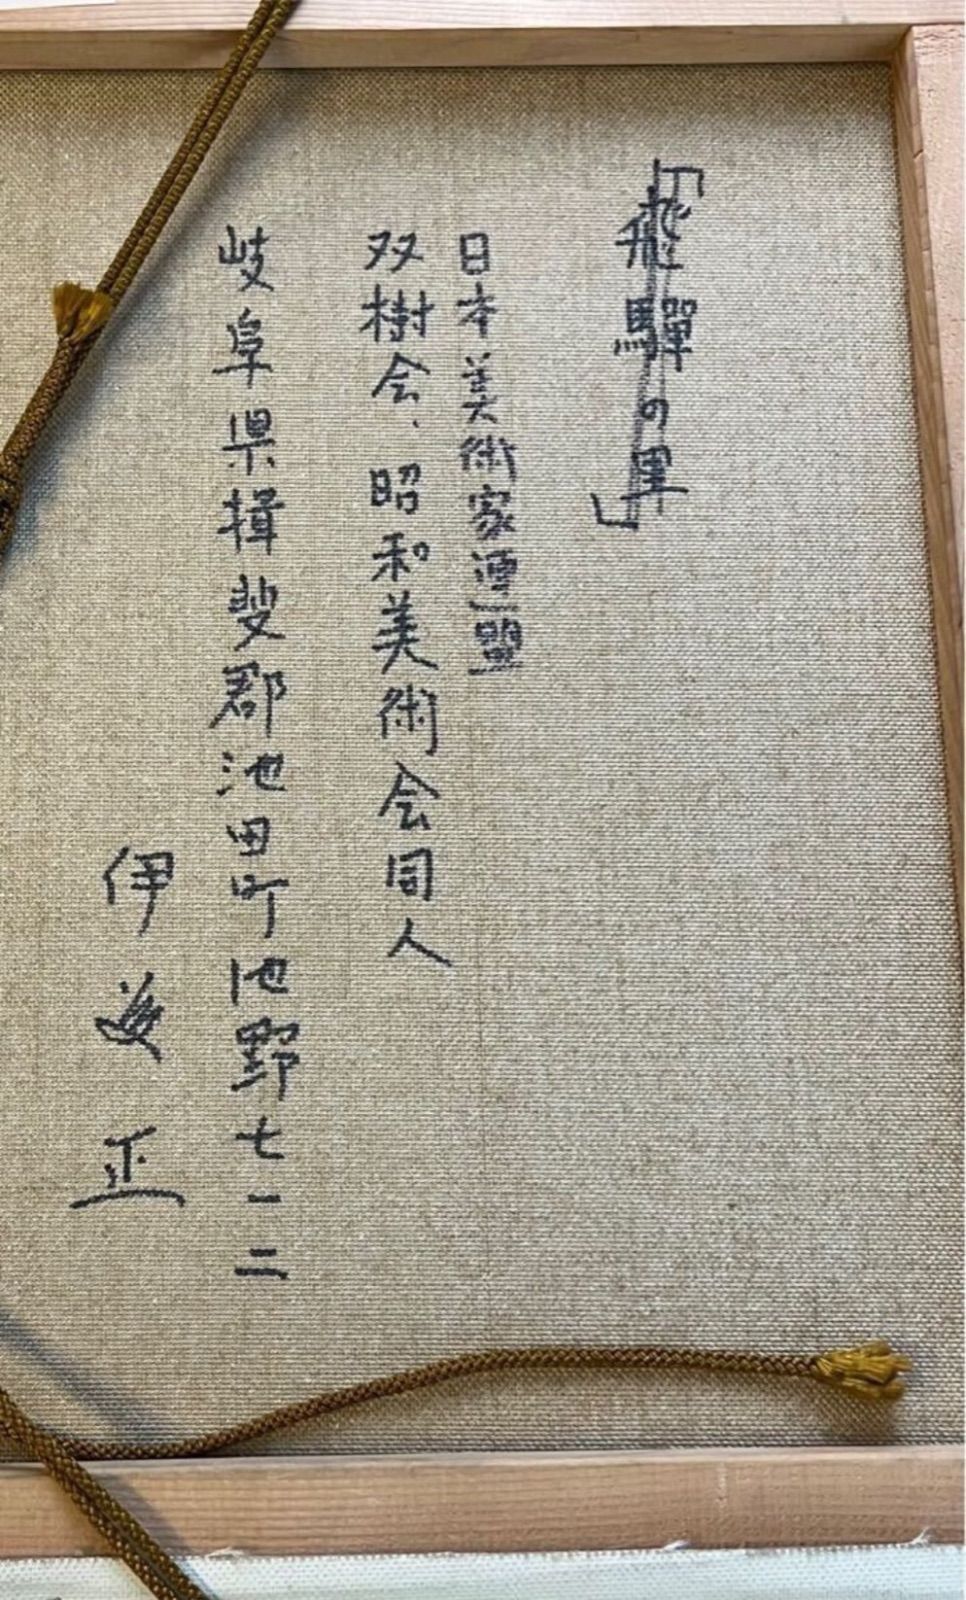 「飛驒の里」
日本美術家連盟
双樹会、昭和美術会同人
岐阜県揖斐郡池田町池野七一二
伊 正